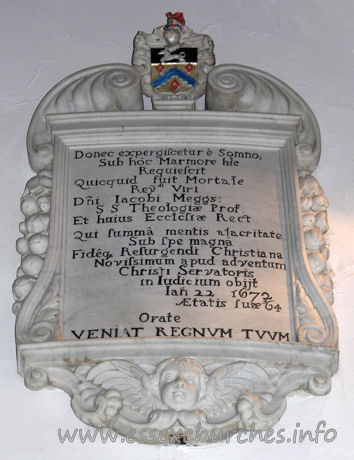 Donec expergiscetur è Somno,
Sub hôc Marmore hîc
Requiescit
Quicquid fuit Mortale
Revᵈⁱ Viri
Dñi Iacobi Meggs:
S S Theologiæ Prof:
Et huius Ecclesiæ Rect
Qui summâ mentis alacritate
Sub spe magnâ
Fideq, Resurgendi Christiana
Novissimum apud adventum
Christi Servatoris
in Iudicium obijt
Ian 22 1672
Ætatis suæ 64
Orate
VENIAT REGNVM TVVM
www.essexchurches.info